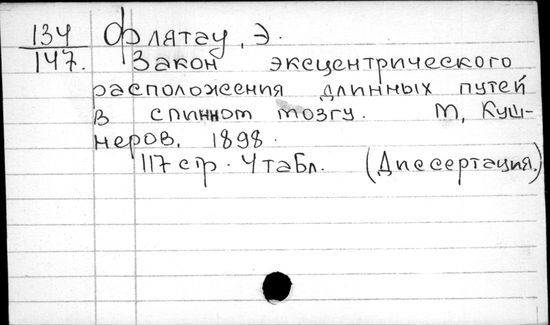 134 Флятау, Э.
147. Закон эксцентрического
расположения длинных путей
в спинном мозгу. М, Куш-
неров, 1898.
117 стр. 4 табл. (Диссертация.)